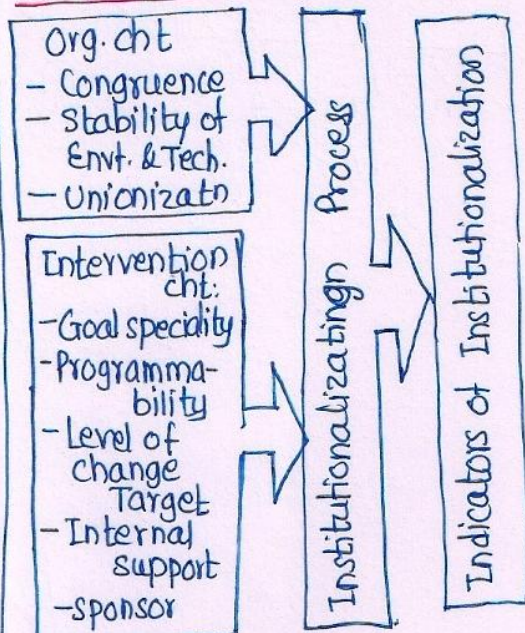 Org. cht
- Congruence
- Stability of
Envt. & Tech.
- Unionizatn
Intervention
cht:
- Goal speciality
- Programma-
bility
- Level of
change
Target
- Internal
support
- sponsor
Institutionalizatingn Process
Indicators of Institutionalization